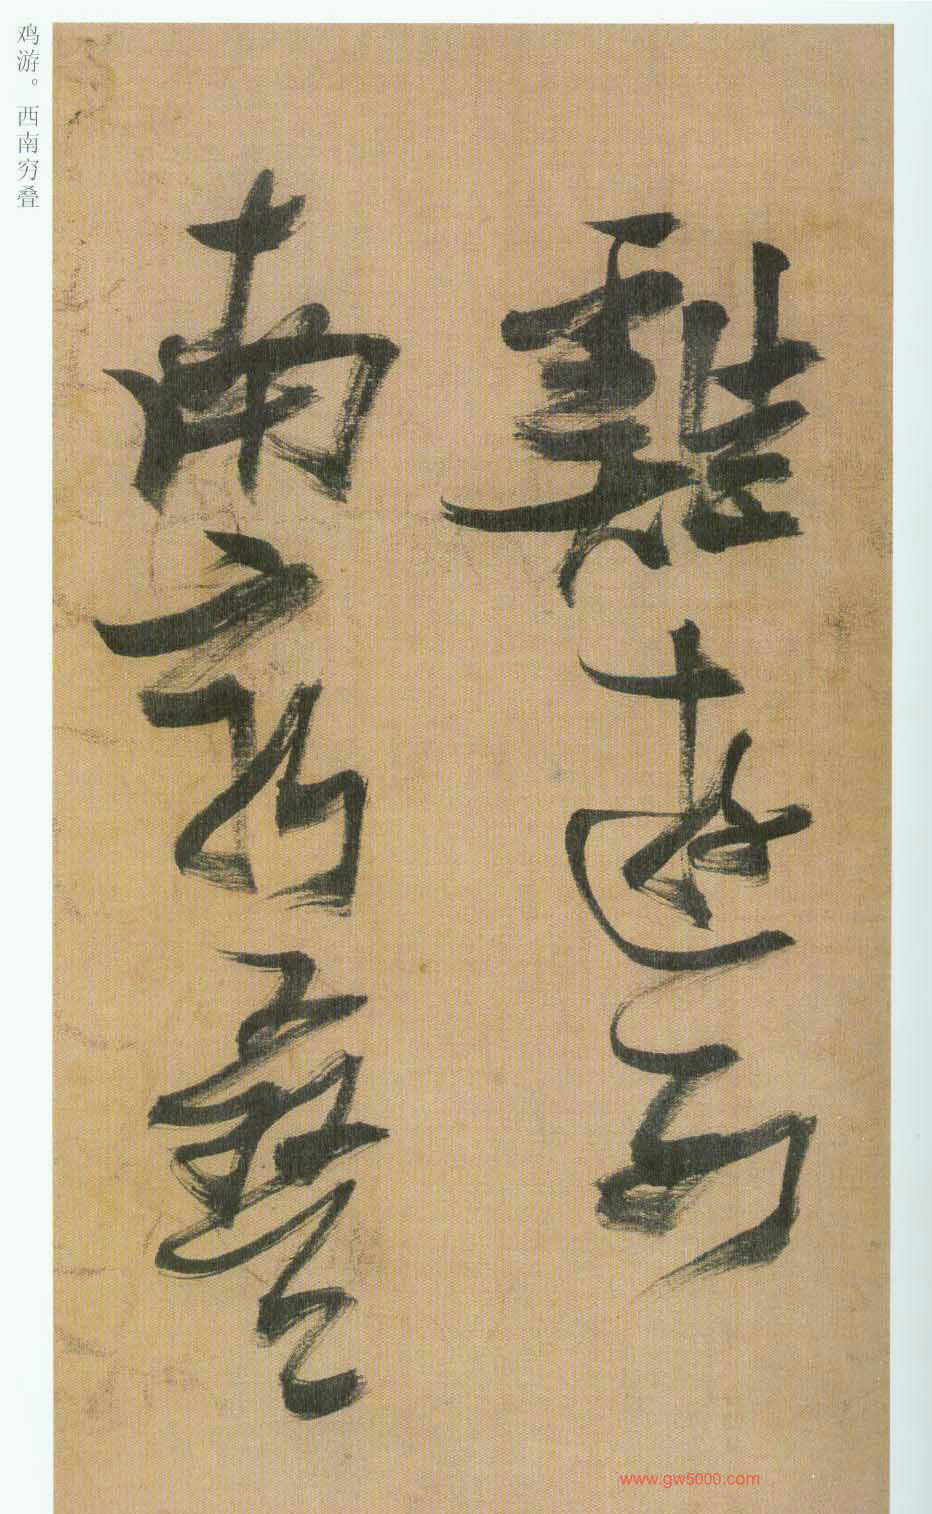 雞遊西
南窮疊
鸡游。西南穷叠
www.gw5000.com